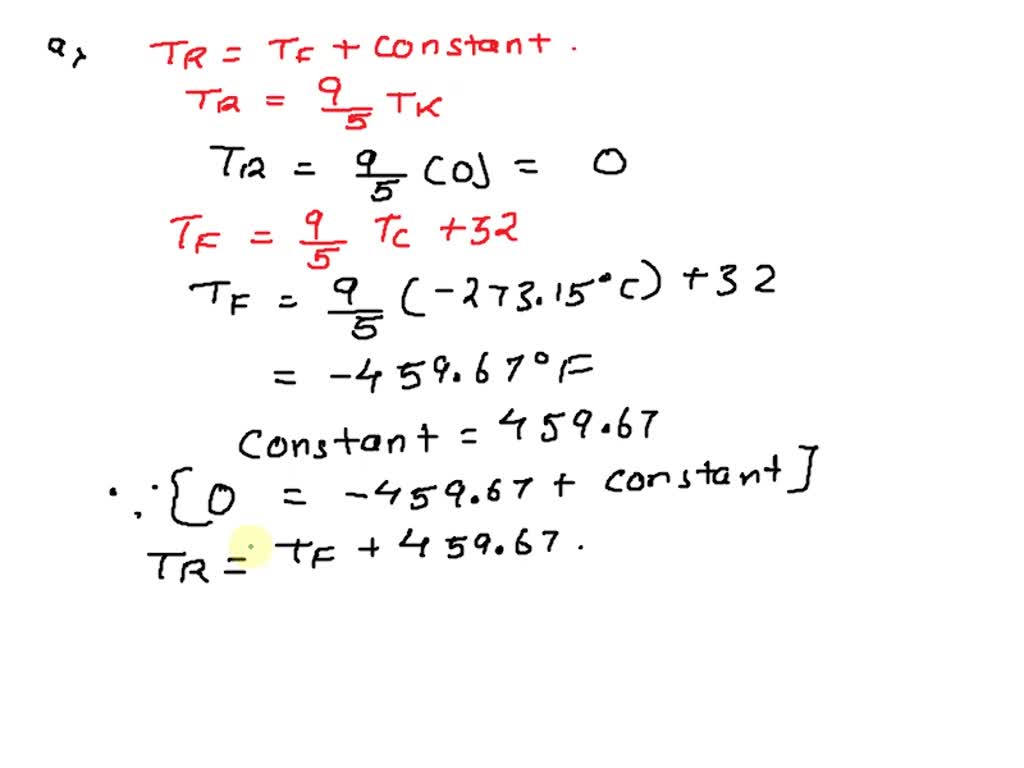 a, TR = TF + constant.
TR = 9/5 TK
TR = 9/5 (0) = 0
TF = 9/5 TC + 32
TF = 9/5 (-273.15°C) + 32
= -459.67°F
constant = 459.67
∵ [0 = -459.67 + constant]
TR = TF + 459.67.